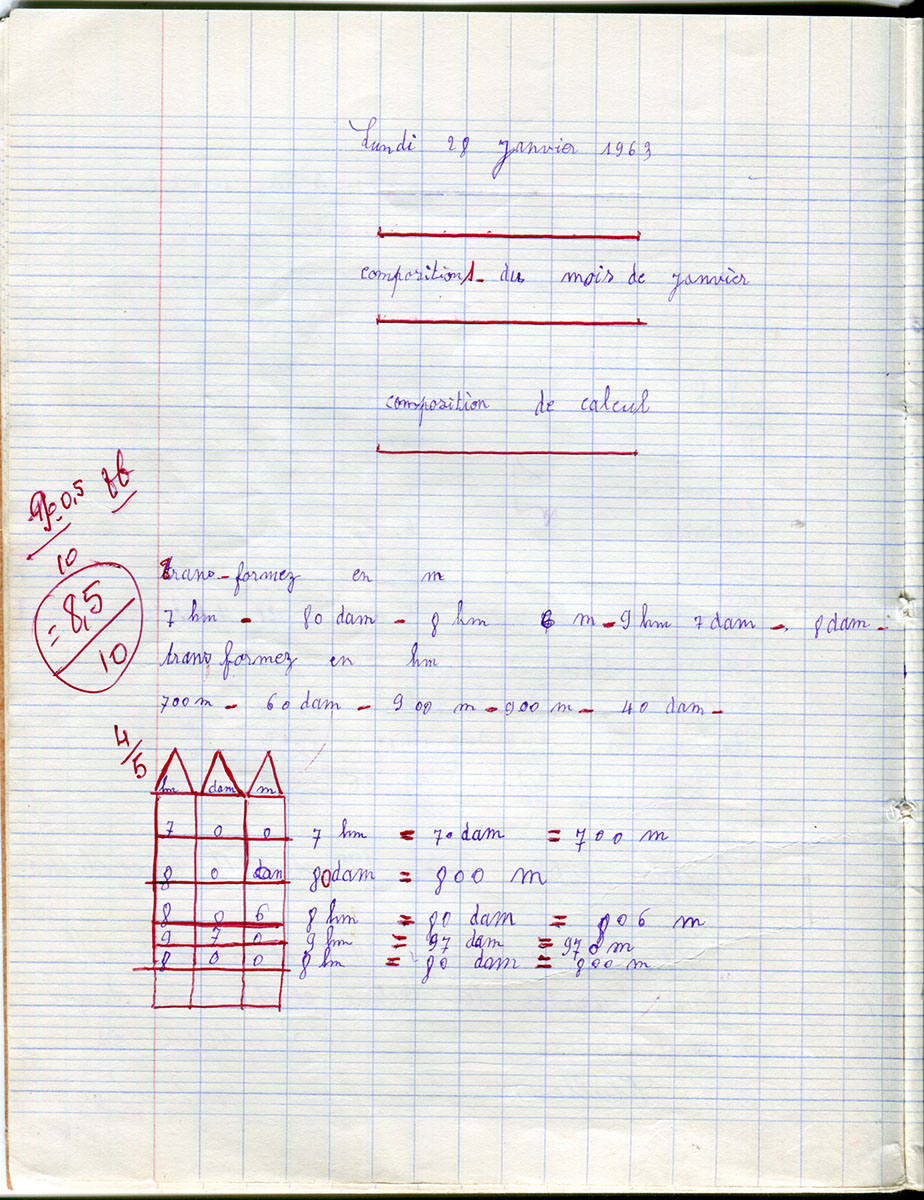 Lundi 28 janvier 1963
compositions du mois de janvier
composition de calcul
9 - 0,5
10
= 8,5
10
trans-formez en m
7 hm - 80 dam - 8 hm 6 m - 9 hm 7 dam - 8 dam -
trans formez en hm
700 m - 60 dam - 900 m - 900 m - 40 dam -
4/5
hm dam m
7 0 0 7 hm = 70 dam = 700 m
8 0 dan 80 dam = 800 m
8 0 6 8 hm = 80 dam = 806 m
9 7 0 9 hm = 97 dam = 970 m
8 0 0 8 hm = 80 dam = 800 m